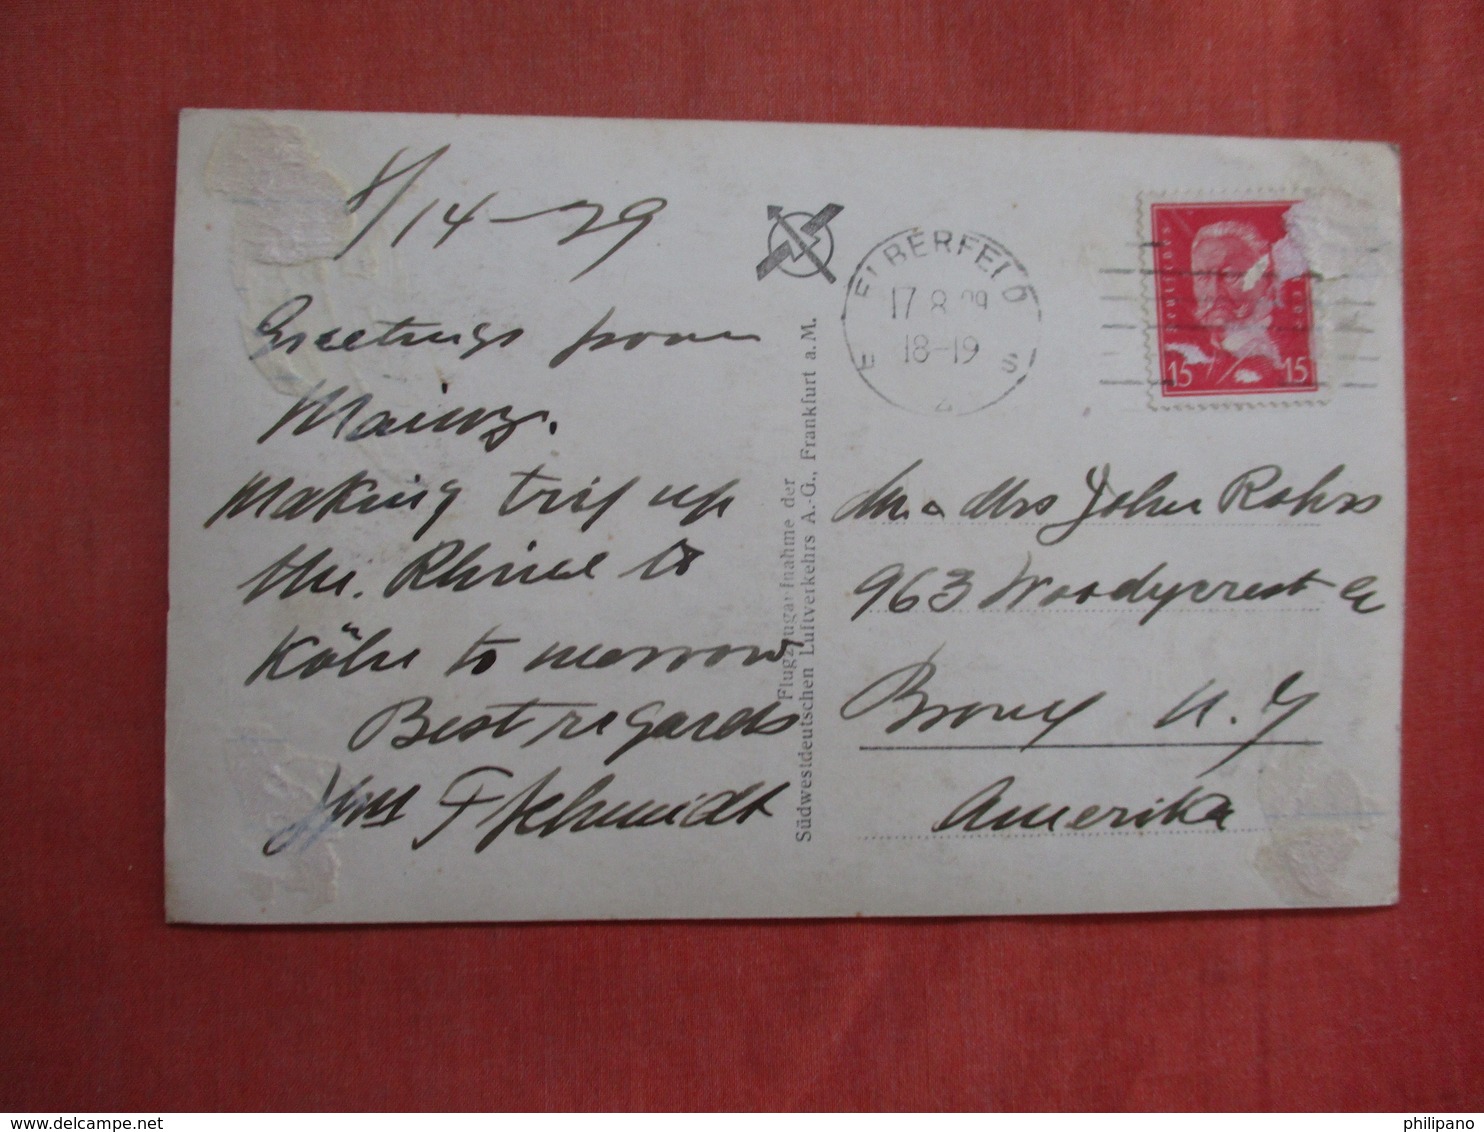 8/14-29
Greetings from
Mainz.
Making trip up
the Rhine to
Köln to morrow
Best regards
Wm F Schmidt
Flugzeugaufnahme der
Südwestdeutschen Luftverkehrs A.-G., Frankfurt a. M.
ELBERFELD
17.8.29
18-19
E S
2
Deutsches
15 15
Mr. & Mrs John Rohrs
963 Woodycrest Av
Bronx N.Y
Amerika
www.delcampe.net
philipano